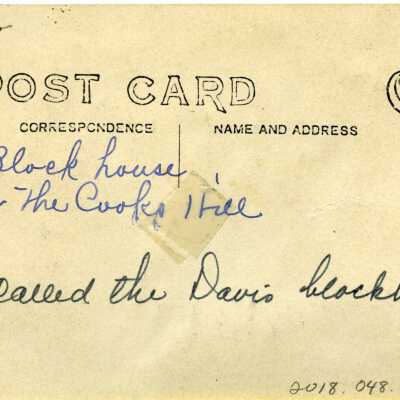 POST CARD
CORRESPONDENCE NAME AND ADDRESS
Block house
The Cooks Hill
called the Davis blockh
2018.048.